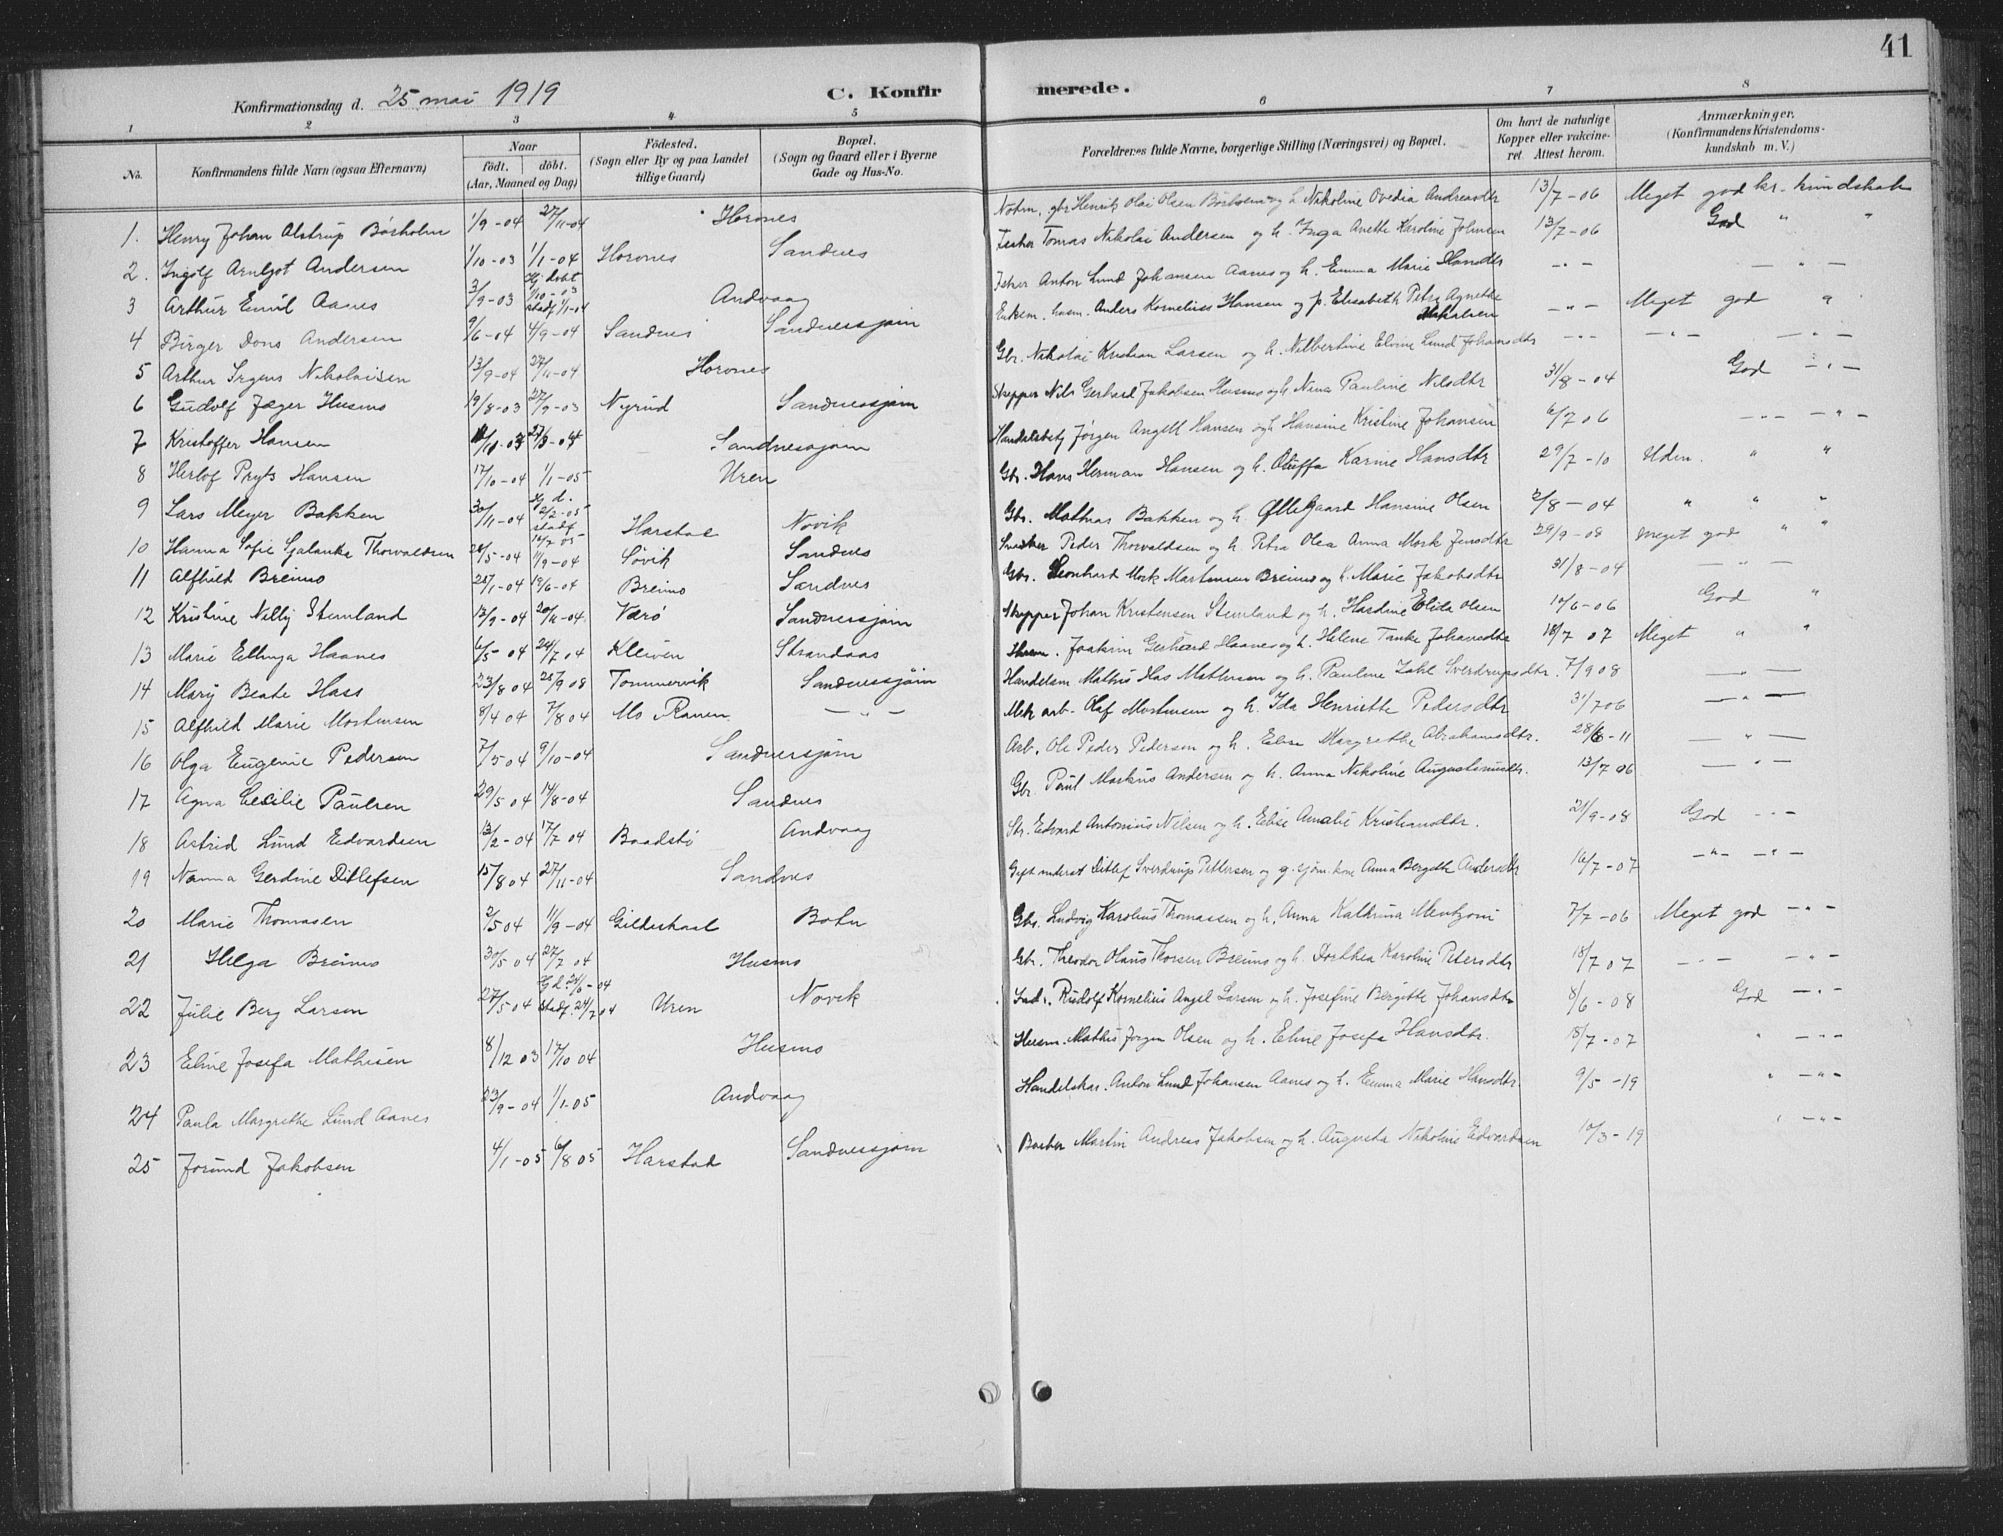 41
Konfirmationsdag d. 25 mai 1919 C. Konfir merede.
1 2 3 4 5 6 7 8
No. Konfirmandens fulde Navn (ogsaa Efternavn) Naar födt. döbt. (Aar, Maaned og Dag) Födested. (Sogn eller By og paa Landet tillige Gaard) Bopæl. (Sogn og Gaard eller i Byerne Gade og Hus-No. Forældrenes fulde Navne, borgerlige Stilling (Næringsvei) og Bopæl. Om havt de naturlige Kopper eller vakcineret. Attest herom. Anmærkninger. (Konfirmandens Kristendomskundskab m. V.)
1. Henry Johan Alstrup Börholm 1/9-04 27/11-04 Horvnes gbr Henrik Olai Olsen h. Nikoline Ovedia Andreasdtr 13/7-06 Meget god kr. kundskab
2. Ingolf Arnljot Andersen 1/10-03 1/1-04 Horvnes Sandnes Fisker Tomas Nikolai Andersen og h. Inga Anette Karoline Johnsen 13/7-06 God " "
3 Arthur Emil Aanes 3/9-03 Hj. döbt 1/10-03 stadf 1/1-04 Andvaag Fisker Anton Lund Johansen Aanes og h. Emma Marie Hansdtr -"- -"-
4 Birger Dons Andersen 9/6-04 4/9-04 Sandnes Sandnessjøen Enkem. husm. Anders Kornelius Hansen og p. Elisabeth Petra Agnethe Mikalsen -"- Meget god "
5 Arthur Nikolaisen 13/9-04 27/11-04 Horvnes Gbr. Nikolai Kristian Larsen og h. Nilbertine Elvine Lund Johansdtr -"- -"- -"-
6 Gudolf Jæger Husmo 19/8-03 27/9-03 Nyrud Sandnessjøen Skipper Nils Gerhard Jakobsen Husmo og h. Nina Pauline Nilsdtr 31/8-04 God -"-
7 Kristoffer Hansen Sandnessjøen Handelsbetj Jørgen Angell Hansen og h Hansine Kristine Johansen 6/7 06 -"- -"-
8 Herlof Pryts Hansen 17/10-04 1/1-05 Uren Gbr. Hans Herman Hansen og h. Oluffa Karine Hansdtr 29/7-10 Uden " "
9 Lars Meyer Bakken 30/11-04 Hj d. 2/2-05 stadf 16/7 05 Novik Gbr. Mathias Bakken og h. Øllegaard Hansine Olsen 2/8-04 " " "
10 Hanna Sofie Thorvaldsen 28/5-04 11/9-04 Harstad Sandnes Snedker Peder Thorvaldsen og h Petra Olea Anna Mork Jensdtr 29/9-08 meget god " "
11 Alfhild Breimo 28/1-04 19/6-04 Søvik Sandnes Gbr. Leonhard Mork Martinsen Breimo og h. Marie Jakobsdtr 31/8-04 -"-
12 Kristine Nelly Stemland 13/9-04 20/11-04 Breimo Værø Sandnessjøen Skipper Johan Kristensen Stemland og h. Hardine Elida Olsen 14/6-06 God "
13 Marie Ellinga Haanes 6/5-04 24/7 04 Kleiven Strandaas Joakim Gerhard Haanes og h. Helene Tanke Johansdtr 18/7 07 Meget " "
14 Mary Beate Hass 23/8 04 Tommervik Sandnessjøen Handelsm Mathis Has Mathisen og h. Pauline Zahl Sverdrupsdtr. 7/9 08 -"-
15 Alfhild Marie Mortensen 8/4 04 7/8 04 Mo Ranen -"- Mek arb. Olaf Mortensen og h. Ida Henriette Pedersdtr 31/7 06 -"-
16 Olga Eugenie Pedersen 7/5 04 9/10-04 Sandnessjøen Arb. Ole Peder Pedersen og h. Elise Margrethe Abrahamsdtr. 28/6-11 -"-
17 Agna Cecilie Paulsen 29/5 04 14/8-04 Sandnes Gbr. Paul Markus Andersen og h. Anna Nikoline Augustinusdtr. 13/7 06 -"-
18 Astrid Lund Edvardsen 13/2-04 17/7 04 Baadstø Andvaag Str. Edvard Antonius Nilsen og h. Elise Amalie Kristiansdtr. 21/9-08 God -"-
19 Nanna Gerdine Ditlefsen 15/8 04 27/11-04 Sandnes Gift underst Ditlef Sverdrup Pettersen og g. kone Anna Bergitte Andersdtr 16/7-07 -"- -"-
20 Marie Thomasen 2/5 04 11/9-04 Gildeskaal Botn Gbr. Ludvig Karolius Thomassen og h. Anna Kathrina Mentzoni 7/7-06 Meget god -"-
21 Helga Breimo 30/5 04 27/7 04 Husmo Gbr. Theodor Olaus Thorsen Breimo og h. Dorthea Karoline Petersdtr 18/7 07 -"- -"-
22 Julie Berg Larsen 27/5 04 Hj d 24/6-04 stadf. 24/7 04 Uren Novik Rudolf Kornelius Angel Larsen og h. Josefine Bergitte Johansdtr 8/6-08 God -"-
23 Eline Josefa Mathisen 8/12 03 17/10 04 Husmo Husm. Mathis Jørgen Olsen og h. Eline Josefa Hansdtr. 18/7-07 " -"-
24 Paula Margrethe Lund Aanes 23/9-04 1/1-05 Andvaag Handelskar. Anton Lund Johansen Aanes og h. Emma Marie Hansdtr 9/5-19 " -"-
25 Jorund Jakobsen 4/1-05 6/8 05 Harstad Sandnessjøen Martin Andreas Jakobsen og h. Augusta Nikoline Edvardsen 10/3-19 " -"-